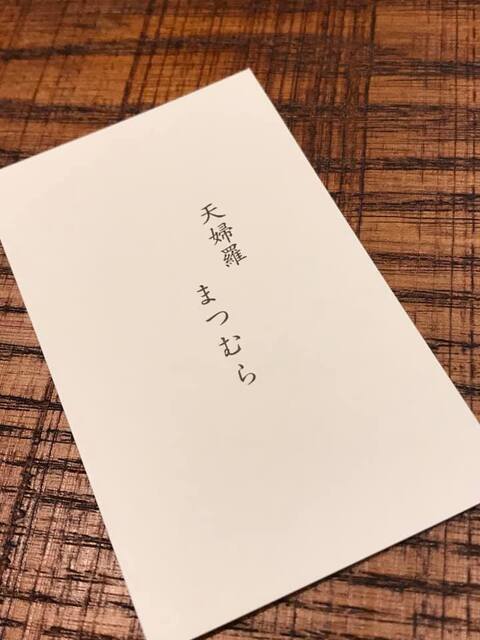 天婦羅 まつむら